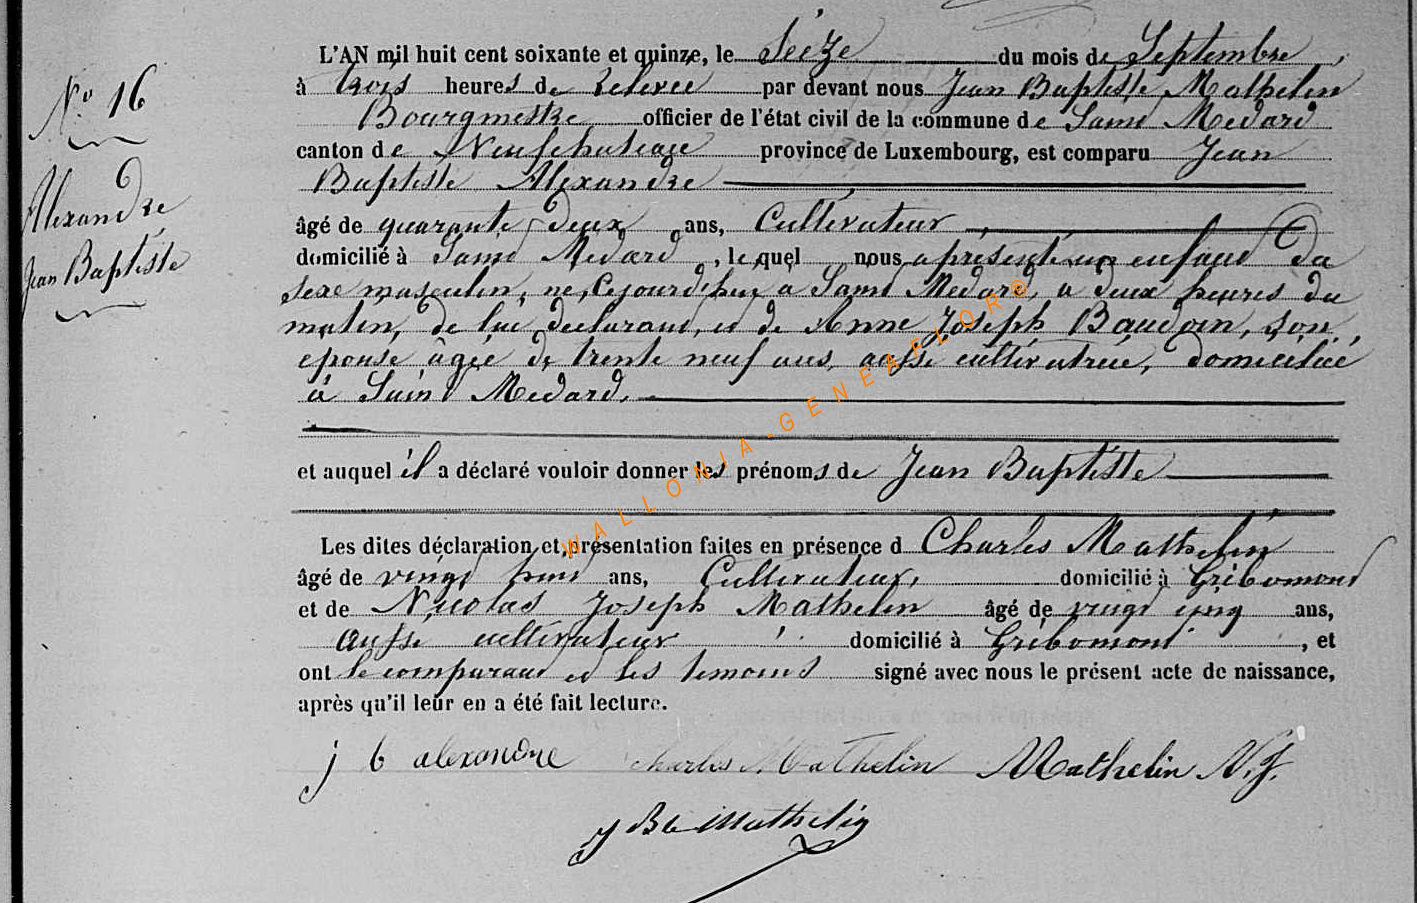 N° 16
Alexandre
Jean Baptiste
L'AN mil huit cent soixante et quinze, le Seize du mois de Septembre,
à trois heures de relevée par devant nous Jean Baptiste Mathelin
Bourgmestre officier de l'état civil de la commune de Saint Médard
canton de Neufchateau province de Luxembourg, est comparu Jean
Baptiste Alexandre
âgé de quarante deux ans, Cultivateur,
domicilié à Saint Medard, lequel nous a présenté un enfant du
sexe masculin, né, cejourd'huy a Saint Medard, a deux heures du
matin, de lui déclarant, et de Anne Joseph Baudoin, son
épouse âgée de trente neuf ans, aussi cultivatrice, domiciliée
à Saint Medard.
et auquel il a déclaré vouloir donner les prénoms de Jean Baptiste
Les dites déclaration et présentation faites en présence d Charles Mathelin
âgé de vingt huit ans, Cultivateur, domicilié à Gribomont
et de Nicolas Joseph Mathelin âgé de vingt cinq ans,
aussi cultivateur domicilié à Gribomont, et
ont le comparant et les temoins signé avec nous le présent acte de naissance,
après qu'il leur en a été fait lecture.
j b alexandre Charles Mathelin Mathelin N. J.
J Bte Mathelin
WALLONIA-GENEAFLOR®